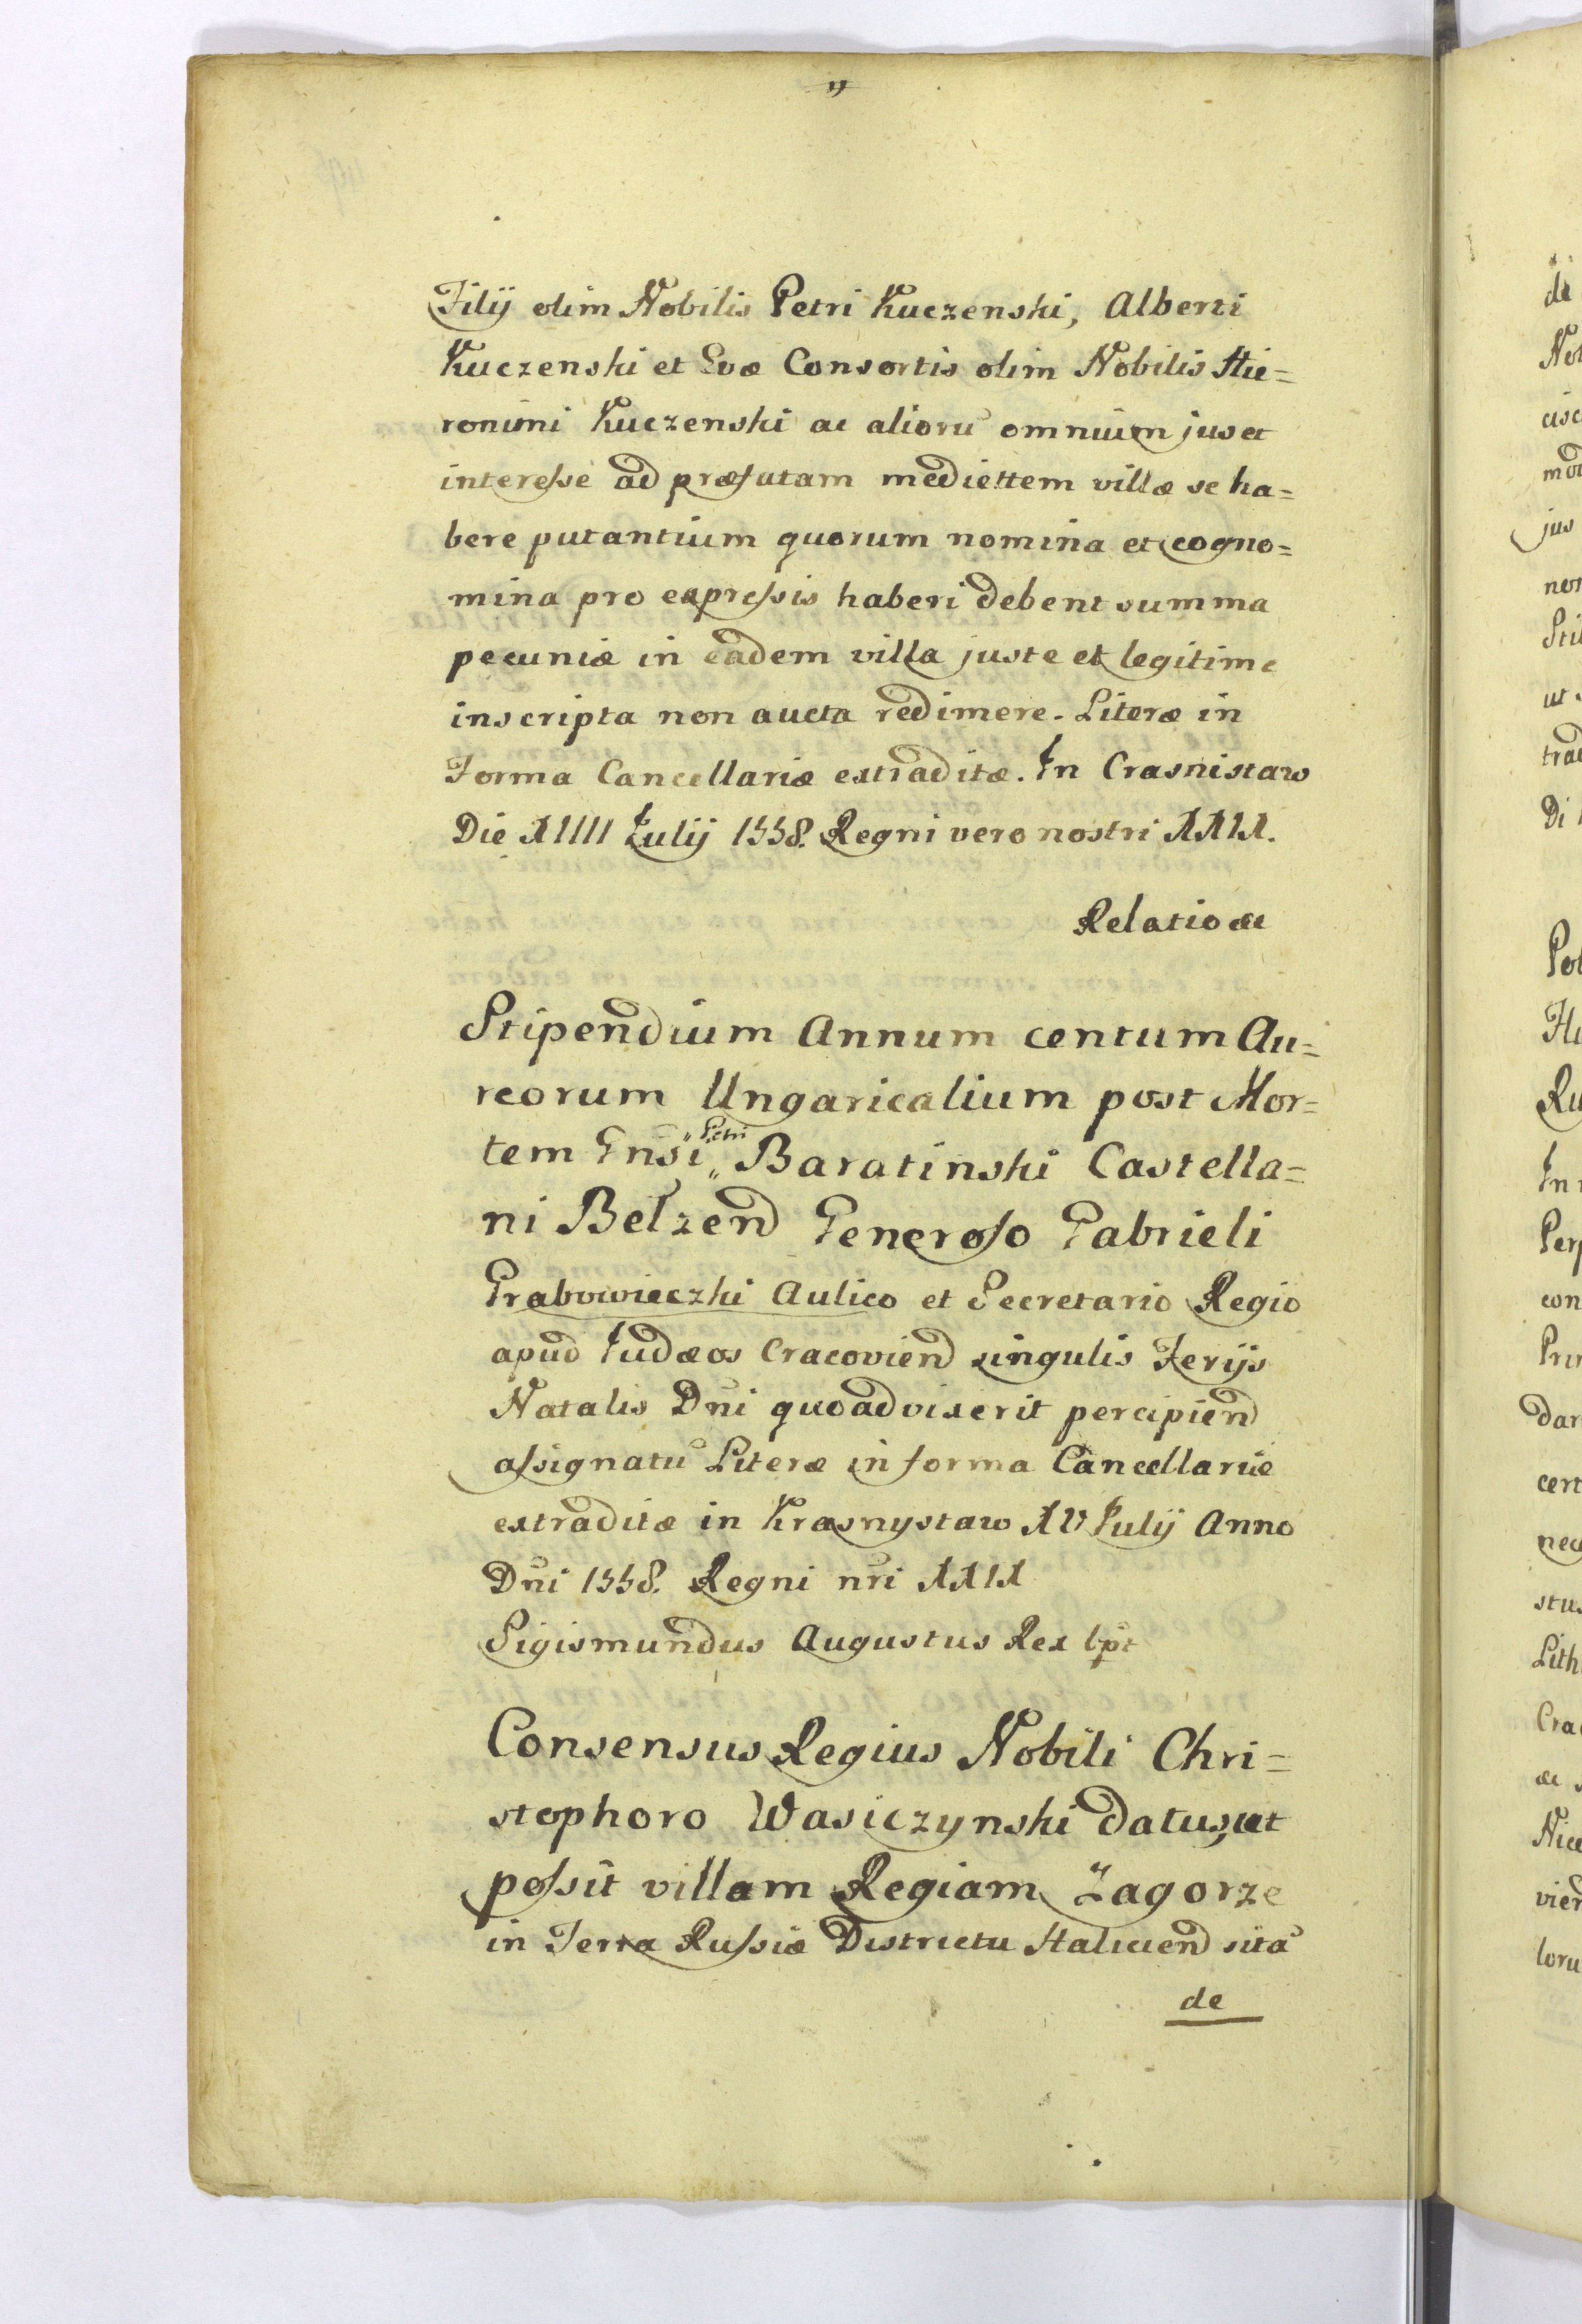 Filij olim Nobilis Petri Kuczenski, Alberti
Kuczenski et Evæ Consortis olim Nobilis Hie=
ronimi Kuczenski ac alioru omnium jus et
interesse ad præfatam mediettem villæ se ha=
bere putantium quorum nomina et cogno=
mina pro expressis haberi debent summa
pecuniæ in eadem villa juste et legitime
inscripta non aucta redimere. Literæ in
Forma Cancellariæ extraditæ. In Crasnistaw
Die XIIII Julij 1558. Regni vero nostri XXIX.
Relatio &c
Stipendium Annum centum Au=
reorum Ungaricalium post Mor=
tem Gnsi Petri Baratinski Castella=
ni Belzen Generoso Gabrieli
Grabowieczki Aulico et Secretario Regio
apud Judæos Cracovien singulis Ferijs
Natalis Dni quoad vixerit percipien
assignatu Literæ in forma Cancellariæ
extraditæ in Krasnystaw XV Julij Anno
Dni 1558. Regni nri XXIX
Sigismundus Augustus Rex
Consensus Regius Nobili Chri=
stophoro Wasiczynski datus, ut
possit villam Regiam Zagorze
in Terra Russiæ Districtu Halicien sita
de
di